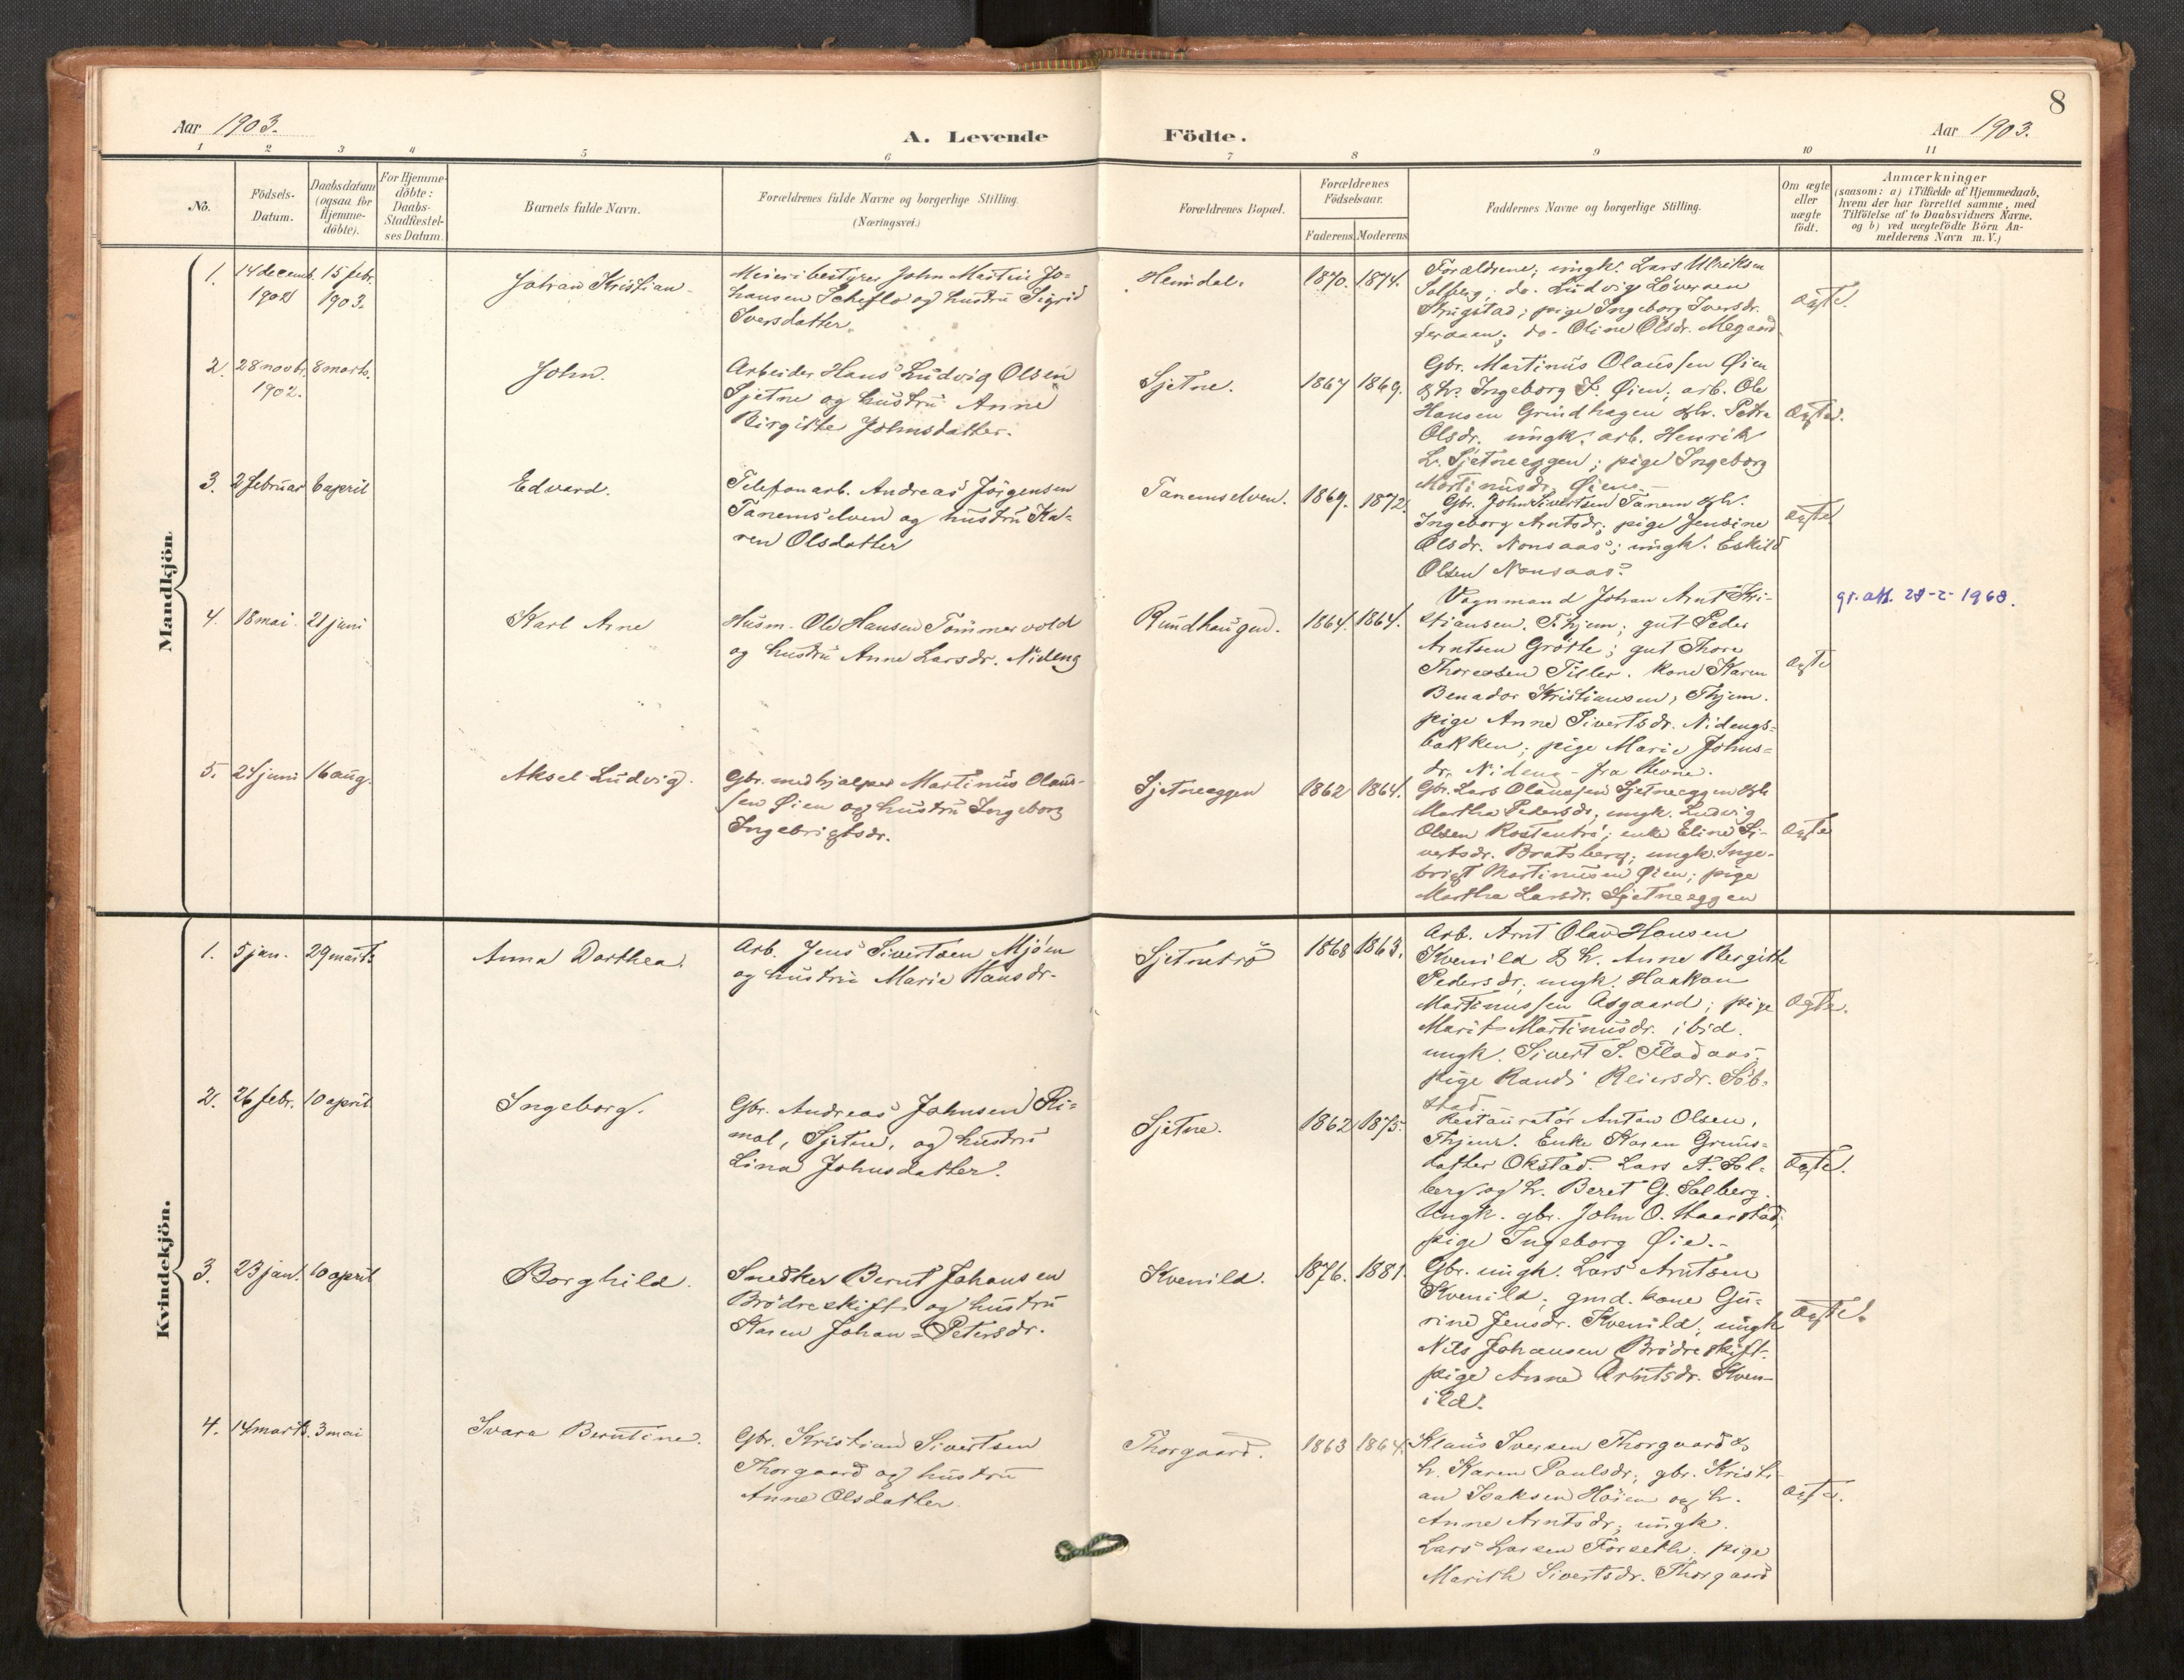 8
Aar 1903.
A. Levende Födte.
Aar 1903.
1 2 3 4 5 6 7 8 9 10 11
No.
Födsels-
Datum.
Daabsdatum
(ogsaa for
Hjemme-
döbte).
For Hjemme-
döbte:
Daabs-
Stadfæstel-
ses Datum.
Barnets fulde Navn.
Forældrenes fulde Navne og borgerlige Stilling.
(Næringsvei.)
Forældrenes Bopæl.
Forældrenes
Födselsaar.
Faderens Moderens
Faddernes Navne og borgerlige Stilling.
Om ægte
eller
uægte
födt.
Anmærkninger
(saasom: a) i Tilfælde af Hjemmedaab,
hvem der har forrettet samme, med
Tilföielse af to Daabsvidners Navne.
og b) ved uægtefödte Börn An-
melderens Navn m. V.)
Mandkjön.
1.
14 decemb.
1902
15 febr.
1903.
Johan Kristian
Meieribestyrer John Martin Jo-
hansen Scheflo og hustru Sigrid
Iversdatter.
Heimdal.
1870. 1874.
Forældrene; ungk. Lars Ulriksen
Solberg; do. Ludvig Löversen
Krigstad; pige Ingeborg Iversdr.
do. Oline Olsdr. Megaard
ægte.
2.
28 novbr.
1902.
8 marts.
John.
Arbeider Hans Ludvig Olsen
Sjetne og hustru Anne
Birgitte Johnsdatter.
Sjetne.
1867 1869.
Gbr. Martinus Olaussen Øien
& h. Ingeborg I. Øien; arb. Ole
Hansen Grindhagen & h. Petra
Olsdr. ungk. arb. Henrik
L. Sjetneeggen; pige Ingeborg
Martinusdr. Øien.
ægte.
3.
2 februar
6 april
Edvard.
Telefonarb. Andreas Jörgensen
Tanemselven og hustru Ka-
ren Olsdatter
Tanemselven.
1869. 1872.
Gbr. John Sivertsen Tanem & h.
Ingeborg Arntsdr; pige Jensine
Olsdr. Nonsaas; ungk. Eskild
Olsen Nonsaas.
ægte
4.
18 mai.
21 juni
Karl Arne
Husm. Ole Hansen Tömmervold
og hustru Anne Larsdr. Nideng
Rundhaugen.
1864. 1864.
Vognmand Johan Arnt Kri-
stiansen, Thjem; gut Peder
Arntsen Grötte; gut Thore
Thoresen Tiller. kone Karen
Benador Kristiansen, Thjem.
pige Anne Sivertsdr. Nidengs-
bakken; pige Marie Johns-
dr. Nideng - fra Hevne.
ægte
gr. att. 29-2-1968.
5.
24 juni
16 aug.
Aksel Ludvig.
Gbr. medhjælper Martinus Olaus-
sen Øien og hustru Ingeborg
Ingebrigtsdr.
Sjetneeggen
1862 1864.
Gbr. Lars Olaussen Sjetneeggen & h.
Martha Pedersdr; ungk. Ludvig
Olsen Rostentrö; enke Eline Si-
vertsdr. Bratsberg; ungk. Inge-
brigt Martinusen Øien; pige
Martha Larsdr. Sjetneeggen
ægte
Kvindekjön.
1.
5 jan.
29 marts
Anna Dorthea.
Arb. Jens Sivertsen Mjöen
og hustru Marie Hansdr.
Sjetnetrö
1868 1863.
Arb. Arnt Olav Hansen
Kvenild & h. Anne Bergitte
Pedersdr; ungk. Haakon
Martinussen Asgaard; pige
Marit Martinusdr. ibid.
ungk. Sivert S. Fladaas;
pige Randi Reiersdr. Söb-
stad.
ægte.
2.
26 febr.
10 april
Ingeborg.
Gbr. Andreas Johnsen Ri-
mol, Sjetne, og hustru
Lina Johnsdatter.
Sjetne.
1862 1875.
Restauratör Anton Olsen,
Thjem. Enke Karen Gruns-
datter Okstad. Lars A. Sol-
berg og h. Beret G. Solberg.
Ungk. gbr. John O. Haarstad,
pige Ingeborg Øie.
ægte.
3.
23 jan.
10 april
Borghild.
Snedker Bernt Johansen
Brödreskift og hustru
Karen Johan-Petersdr.
Kvenild.
1876. 1881.
Gbr. ungk. Lars Arntsen
Kvenild; gmd. kone Gu-
rine Jensdr. Kvenild; ungk
Nils Johansen Brödreskift.
pige Anne Arntsdr. Kven-
ild.
ægte.
4.
14 marts.
3 mai
Svara Berntine.
Gbr. Kristian Sivertsen
Thorgaard og hustru
Anne Olsdatter.
Thorgaard.
1863 1864.
Klaus Iversen Thorgaard &
h. Karen Paulsdr; gbr. Kristi-
an Isaksen Höien og h.
Anne Arntsdr; ungk.
Lars Larsen Forseth; pige
Marith Sivertsdr. Thorgaard
ægte.